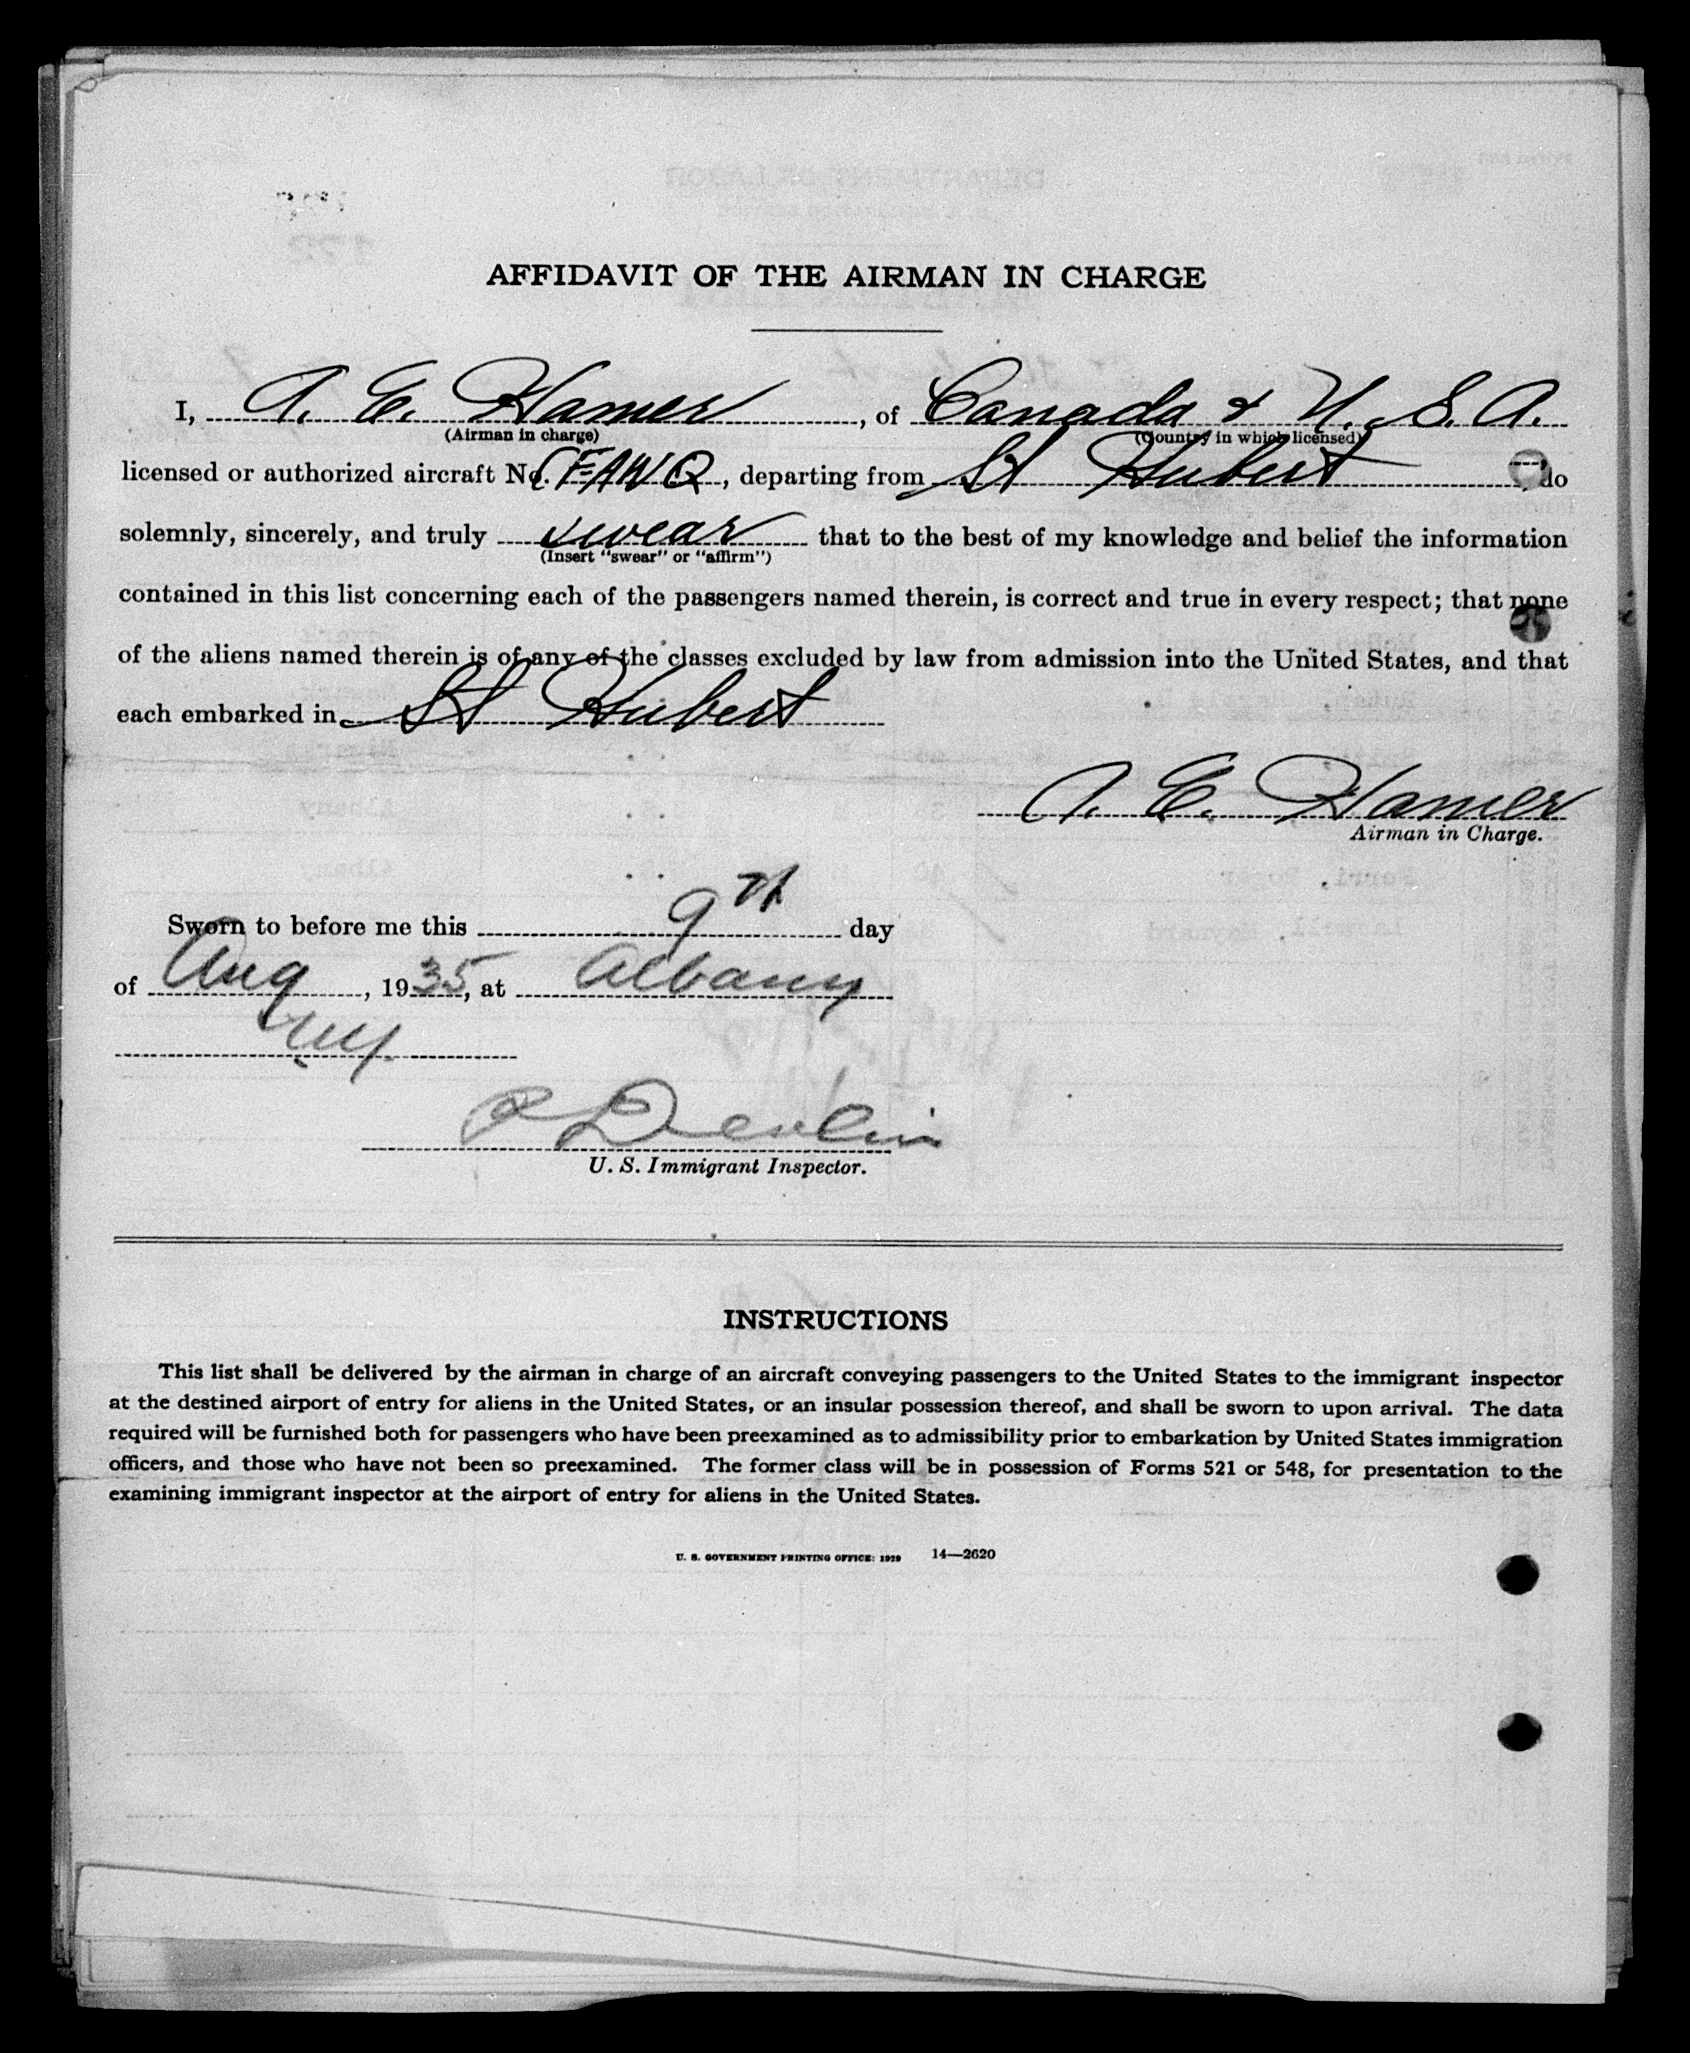 AFFIDAVIT OF THE AIRMAN IN CHARGE
I, A. E. Hamer, of Canada & U. S. A.
(Airman in charge) (Country in which licensed)
licensed or authorized aircraft No. CFAWQ, departing from St Hubert, do
solemnly, sincerely, and truly swear that to the best of my knowledge and belief the information
(Insert "swear" or "affirm")
contained in this list concerning each of the passengers named therein, is correct and true in every respect; that none
of the aliens named therein is of any of the classes excluded by law from admission into the United States, and that
each embarked in St Hubert
A. E. Hamer
Airman in Charge.
Sworn to before me this 9th day
of Aug, 1935, at Albany
N.Y.
Devlin
U. S. Immigrant Inspector.
INSTRUCTIONS
This list shall be delivered by the airman in charge of an aircraft conveying passengers to the United States to the immigrant inspector
at the destined airport of entry for aliens in the United States, or an insular possession thereof, and shall be sworn to upon arrival. The data
required will be furnished both for passengers who have been preexamined as to admissibility prior to embarkation by United States immigration
officers, and those who have not been so preexamined. The former class will be in possession of Forms 521 or 548, for presentation to the
examining immigrant inspector at the airport of entry for aliens in the United States.
U. S. GOVERNMENT PRINTING OFFICE: 1929 14—2620